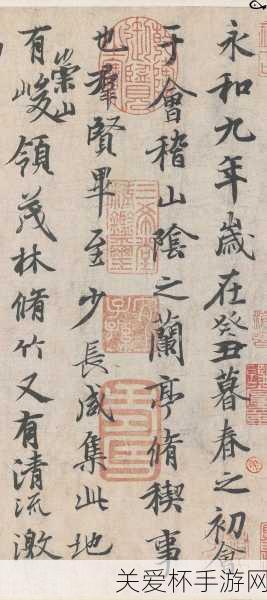 永和九年歲在癸丑暮春之初會
于會稽山陰之蘭亭脩稧事
也羣賢畢至少長咸集此地
有崇山峻領茂林脩竹又有清流激
三希堂精鑑璽
宜子孫
关爱杯手游网